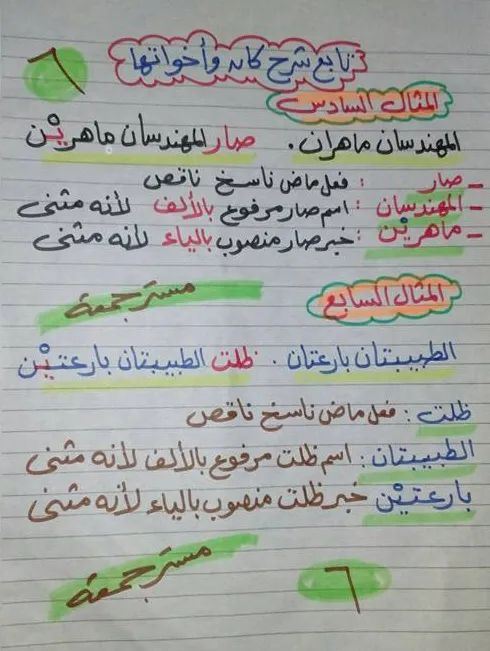 ٦
تابع شرح كان وأخواتها
المثال السادس
المهندسان ماهران. صار المهندسان ماهريْن
- صار : فعل ماض ناسخ ناقص
- المهندسان : اسم صار مرفوع بالألف لأنه مثنى
- ماهريْن : خبر صار منصوب بالياء لأنه مثنى
مستر جمعة
المثال السابع
الطبيبتان بارعتان. ظلت الطبيبتان بارعتيْن
ظلت : فعل ماض ناسخ ناقص
الطبيبتان : اسم ظلت مرفوع بالألف لأنه مثنى
بارعتيْن خبر ظلت منصوب بالياء لأنه مثنى
مستر جمعة
٦